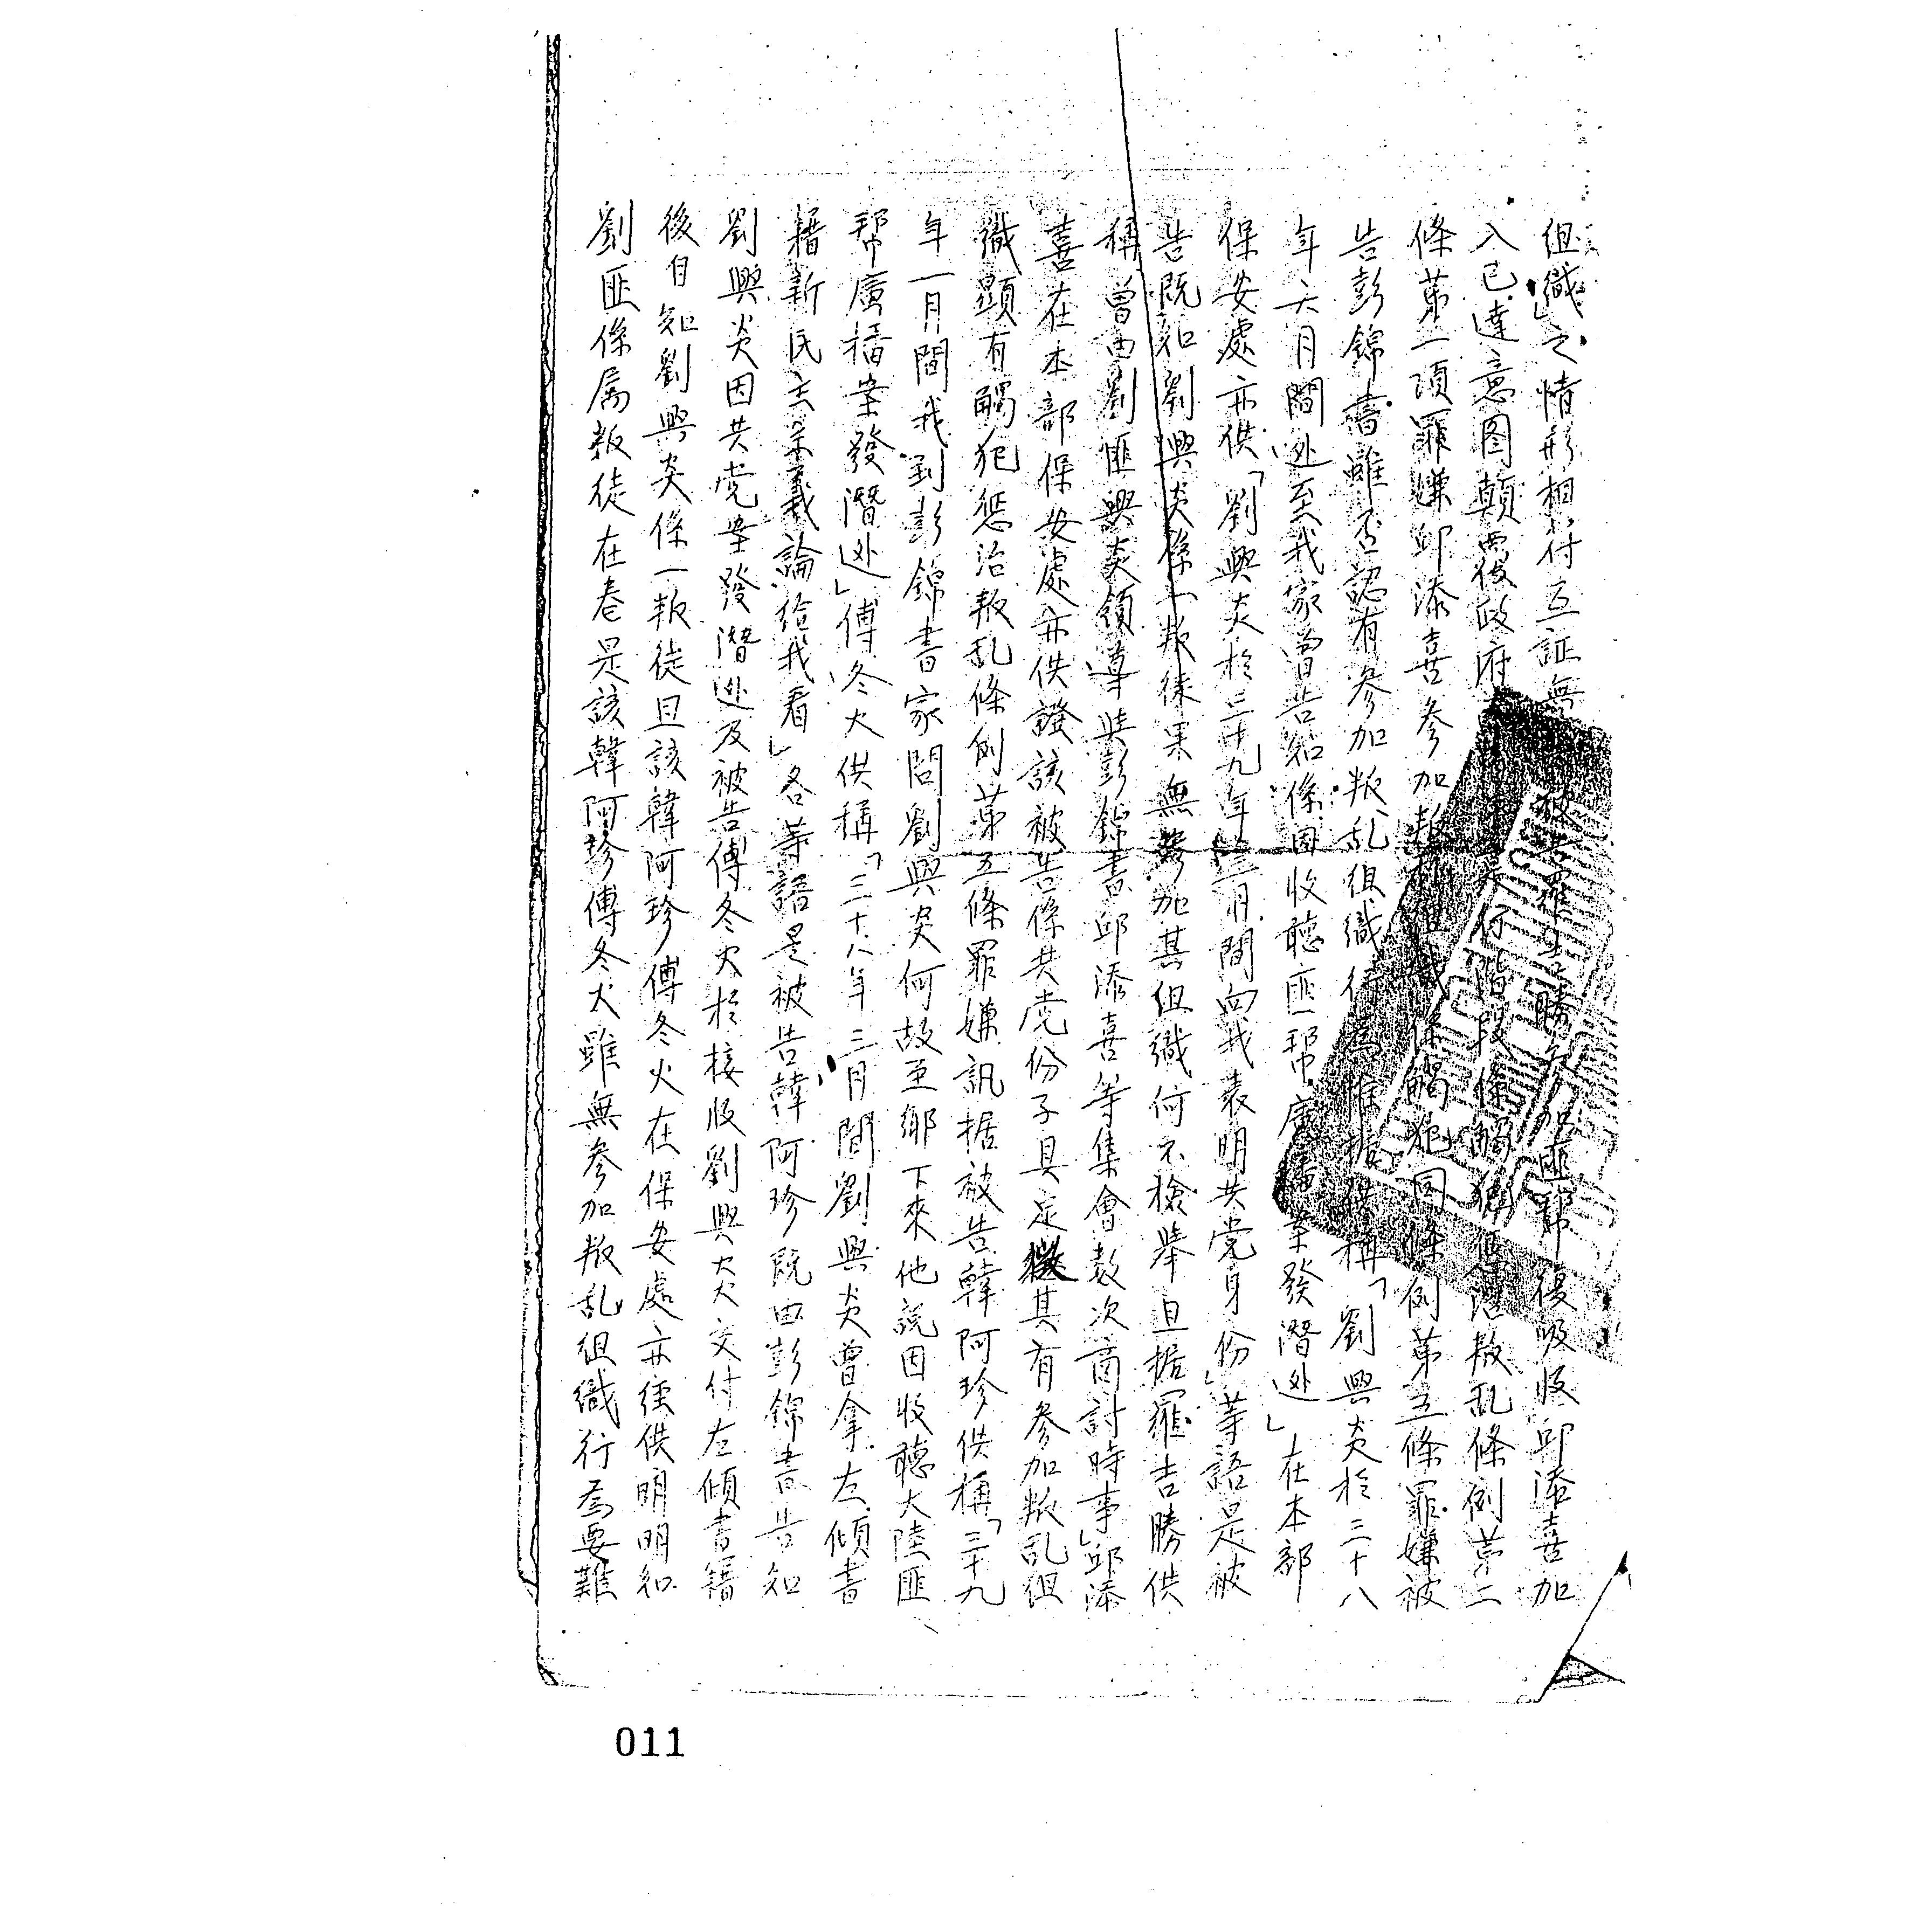 組織」之情形相符互証無被告羅吉勝參加匪帮復吸收邱添喜加
入已達意图顛覆政府着手實行階段係觸犯懲治叛乱條例第二
條第一項罪嫌邱添喜参加叛乱組織係觸犯同條例第五條罪嫌被
告彭錦書雖否認有參加叛乱組織行為惟据供稱「劉興炎於三十八
年六月間逃至我家曾告知係因收聽匪帮廣播案發潛逃」在本部
保安處亦供「劉興炎於三十九年三月間向我表明共党身份」等語是被
告既知劉興炎係一叛徒果無參加其組織何不檢舉且据羅吉勝供
稱曾由劉匪興炎領導與彭錦書邱添喜等集會数次商討時事」邱添
喜在本部保安處亦供證該被告係共党份子具足徵其有参加叛乱組
織顯有觸犯懲治叛乱條例第五條罪嫌訊据被告韓阿珍供稱「三十九
年一月間我到彭錦書家問劉興炎何故至鄉下來他說因收聽大陸匪
帮廣播案發潛逃」傅冬火供稱「三十八年三月間劉興炎曾拿左傾書
籍新民主主義論給我看」各等語是被告韓阿珍既由彭錦書告知
劉興炎因共党案發潛逃及被告傅冬火於接收劉興炎交付左傾書籍
後自知劉興炎係一叛徒且該韓阿珍傅冬火在保安處亦徑供明明知
劉匪係属叛徒在卷是該韓阿珍傅冬火雖無参加叛乱組織行為要難
011